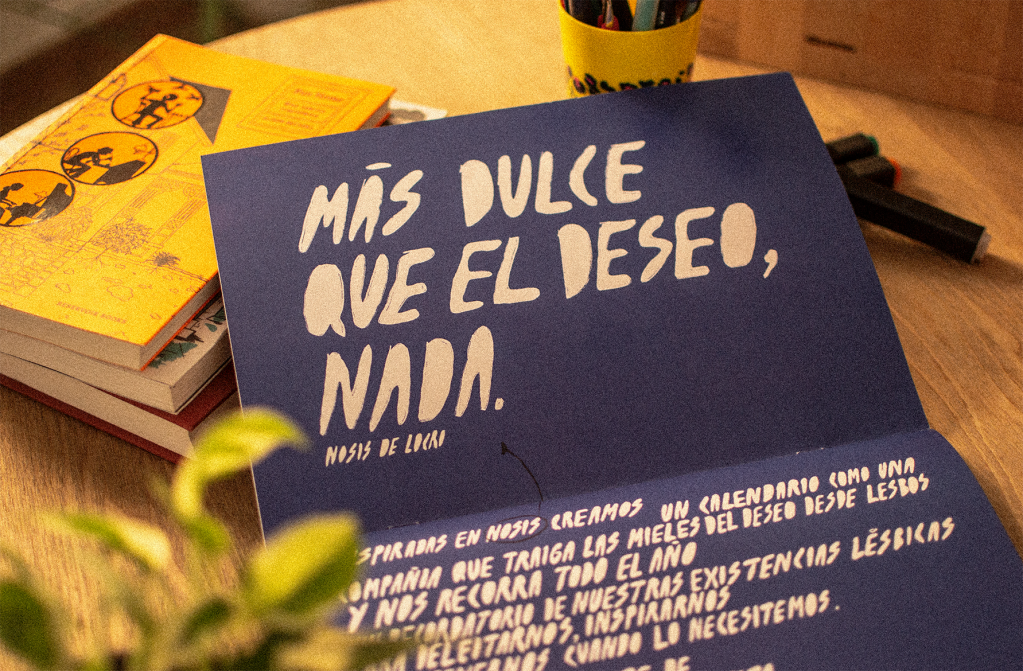 MĀS DULCE
QUE EL DESEO,
NADA.
NOSIS DE LOCRI
SPIRADAS EN NOSIS CREAMOS UN CALENDARIO COMO UNA
COMPAÑIA QUE TRAIGA LAS MIELES DEL DESEO DESDE LESBOS
Y NOS RECORRA TODO EL AÑO
RECORDATORIO DE NUESTRAS EXISTENCIAS LÉSBICAS
DELEITARNOS, INSPIRARNOS
CUANDO LO NECESITEMOS.
DE